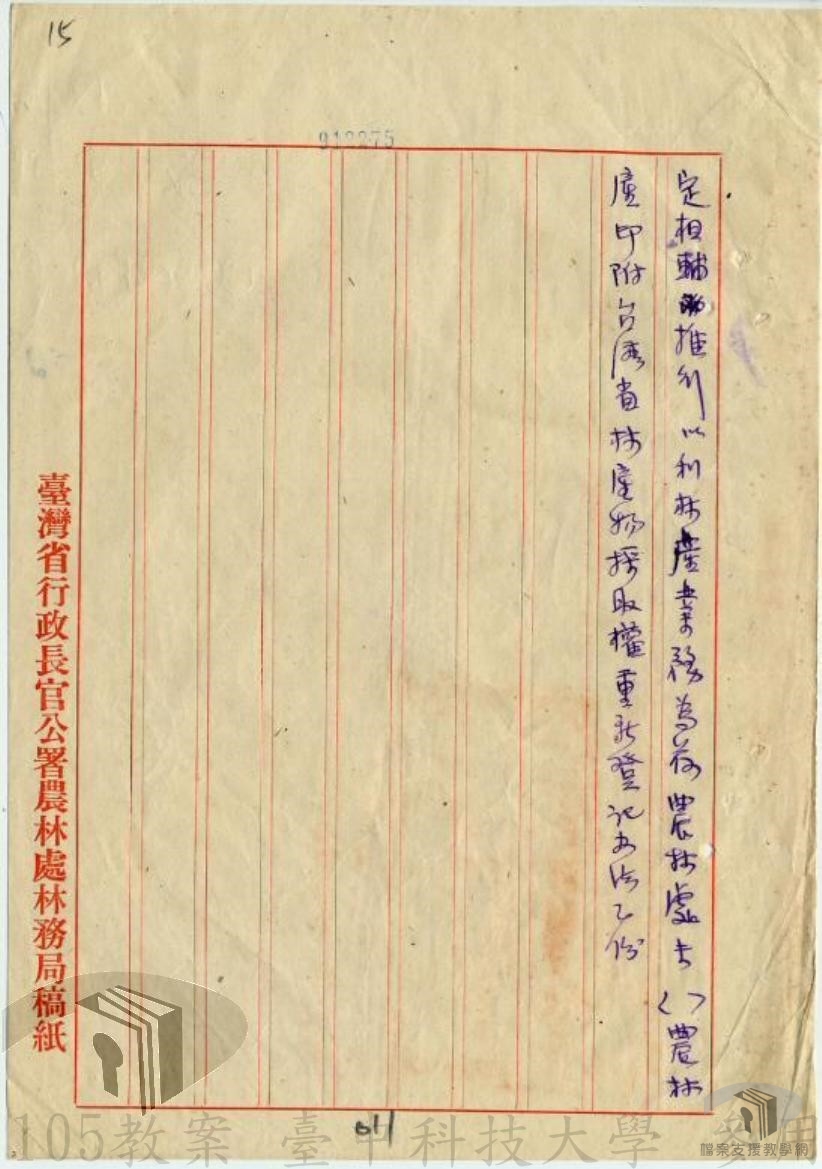 15
912275
定相輔推行以利林產業務為荷農林處長()農林
產印附台湾省林產物採取權重新登记办法乙份
臺灣省行政長官公署農林處林務局稿紙
105教案 臺 科技大學
檔案支援教學網